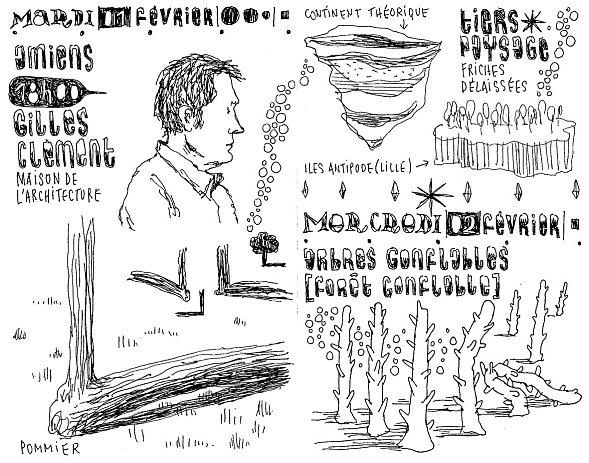 MARDI 01 FÉVRIER
AMIENS
18h00
GILLES
CLÉMENT
MAISON DE
L'ARCHITECTURE
POMMIER
CONTINENT THÉORIQUE
TIERS
PAYSAGE
FRICHES
DÉLAISSÉES
ILES ANTIPODE (LILLE)
MERCREDI 02 FÉVRIER
ARBRES GONFLABLES
[FORÊT GONFLABLE]